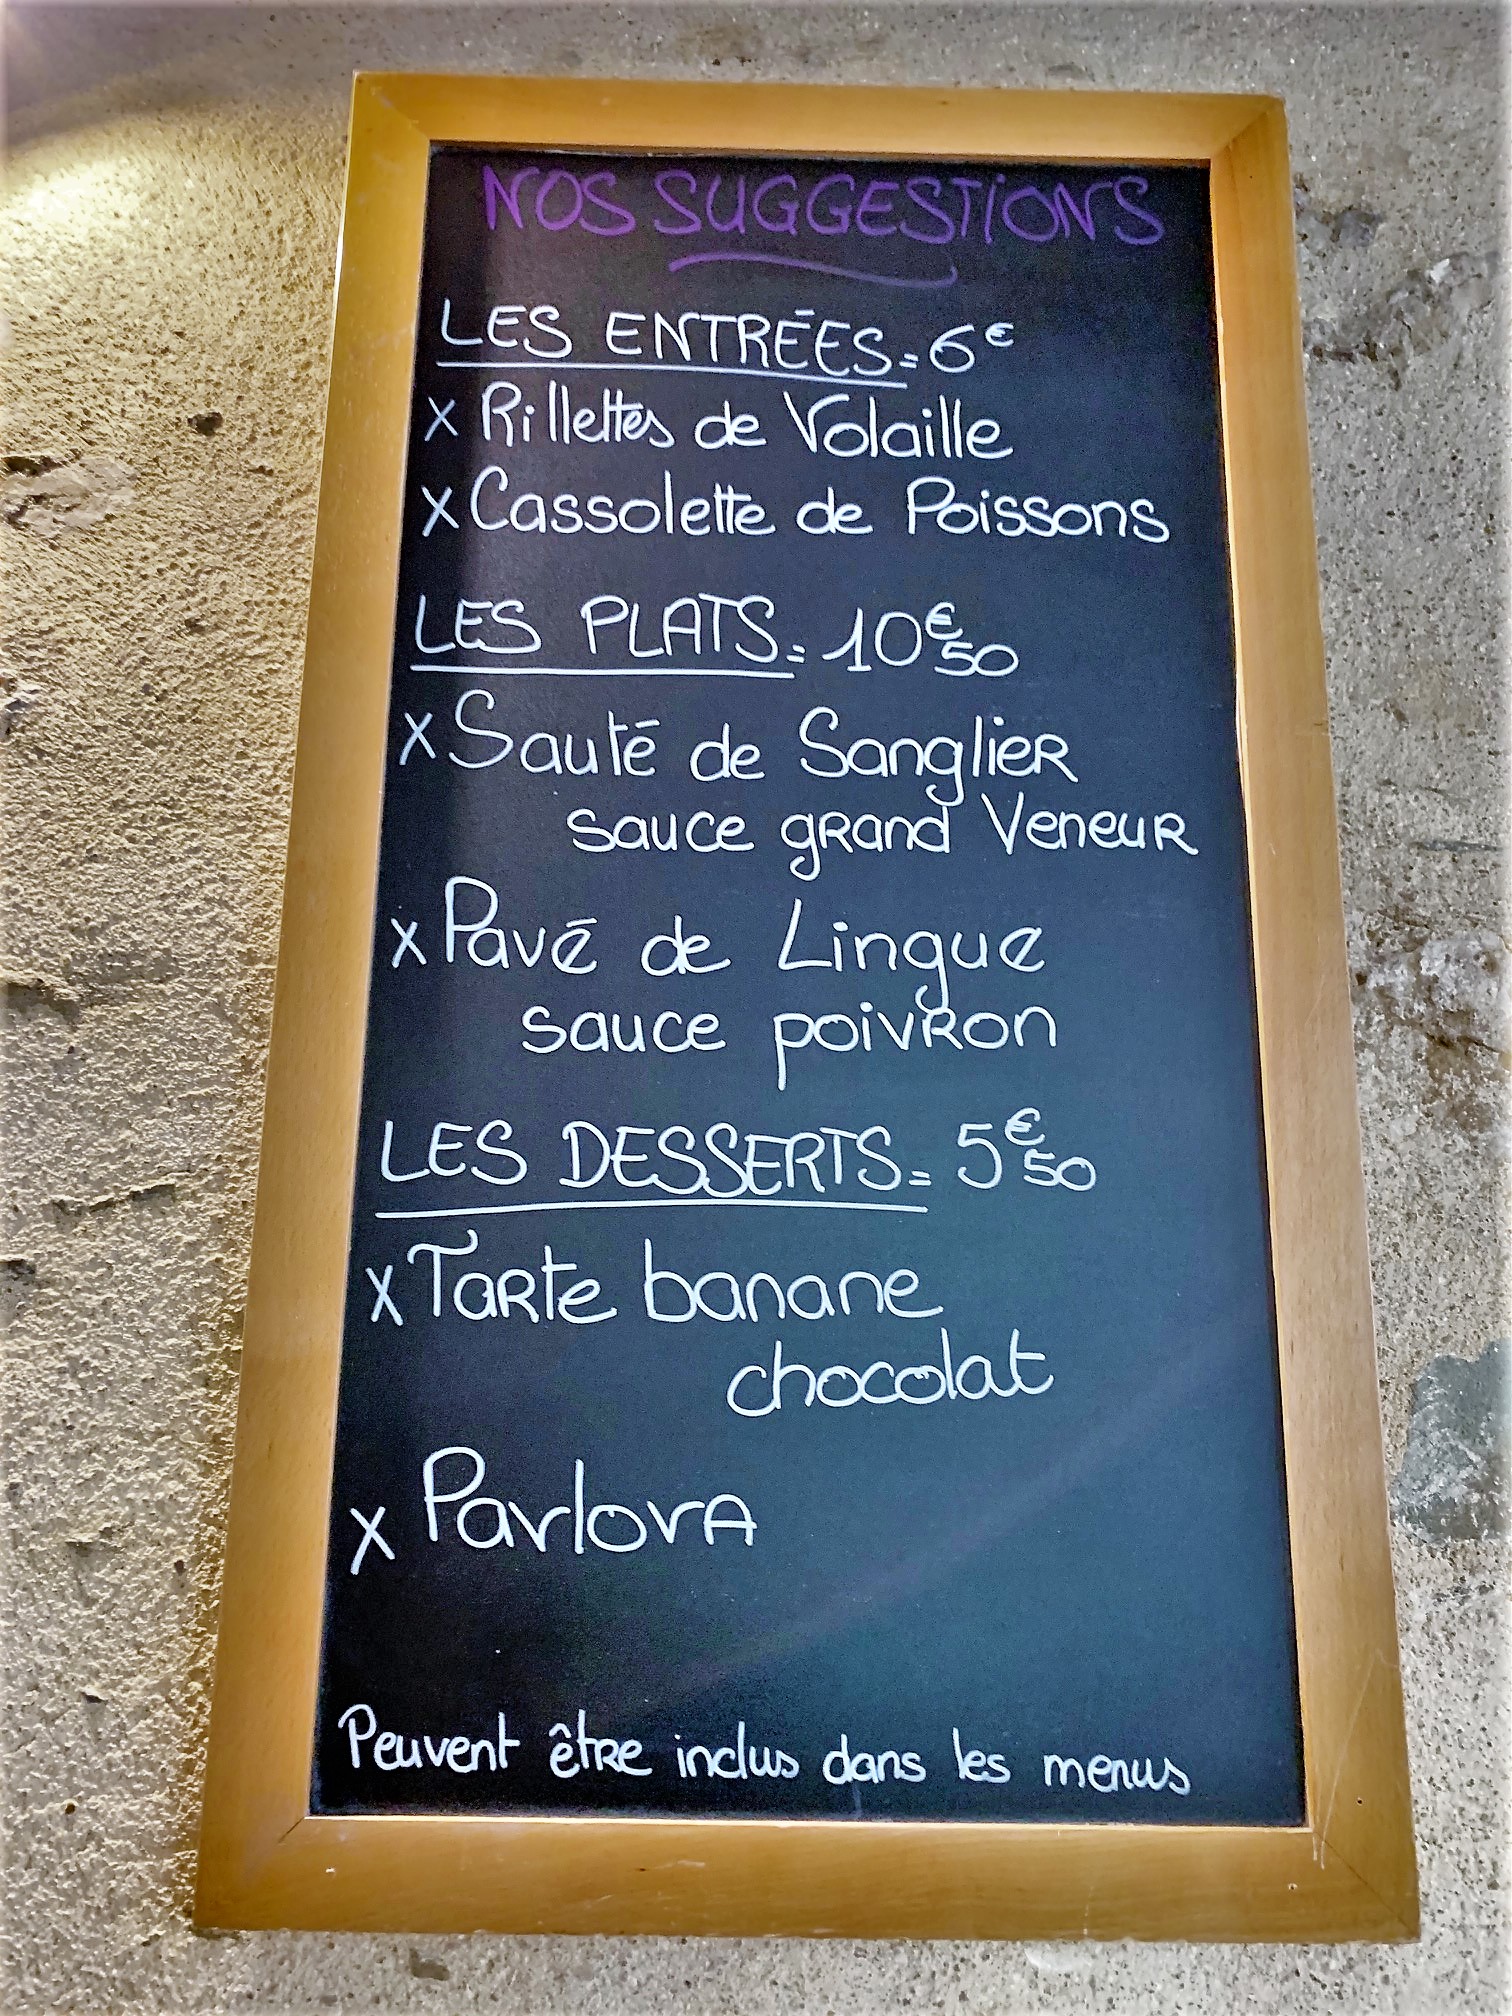 NOS SUGGESTIONS
LES ENTRÉES = 6€
x Rillettes de Volaille
x Cassolette de Poissons
LES PLATS = 10€50
x Sauté de Sanglier
sauce grand Veneur
x Pavé de Lingue
sauce poivron
LES DESSERTS = 5€50
x Tarte banane
chocolat
x Pavlova
Peuvent être inclus dans les menus